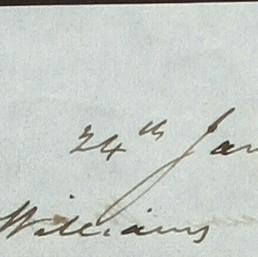 24th Jan
Williams